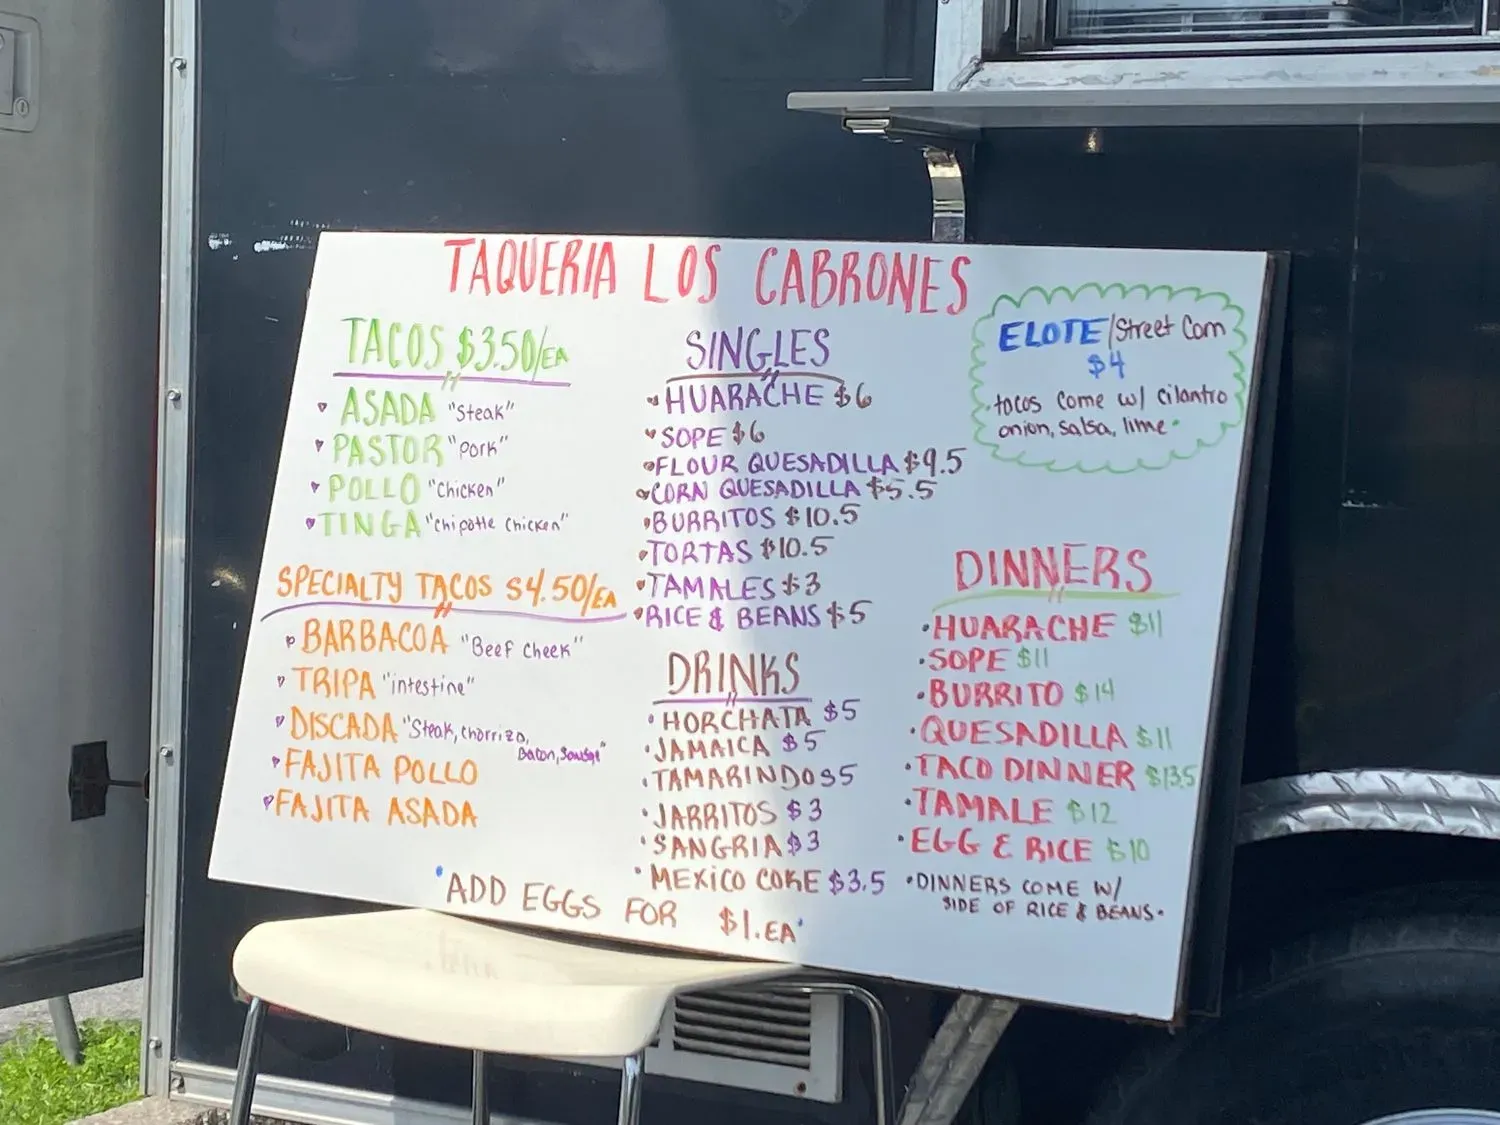 TAQUERIA LOS CABRONES
TACOS $3.50/EA
ASADA "Steak"
PASTOR "Pork"
POLLO "Chicken"
TINGA "chipotle chicken"
SPECIALTY TACOS $4.50/EA
BARBACOA "Beef Cheek"
TRIPA "intestine"
DISCADA "Steak, chorrizo,
Bacon, Sausage"
FAJITA POLLO
FAJITA ASADA
SINGLES
• HUARACHE $6
• SOPE $6
• FLOUR QUESADILLA $9.5
• CORN QUESADILLA $5.5
• BURRITOS $10.5
• TORTAS $10.5
• TAMALES $3
• RICE & BEANS $5
DRINKS
• HORCHATA $5
• JAMAICA $5
• TAMARINDO $5
• JARRITOS $3
• SANGRIA $3
• MEXICO COKE $3.5
ELOTE/Street Corn
$4
• tacos come w/ cilantro
onion, salsa, lime •
DINNERS
• HUARACHE $11
• SOPE $11
• BURRITO $14
• QUESADILLA $11
• TACO DINNER $13.5
• TAMALE $12
• EGG & RICE $10
• DINNERS COME W/
SIDE OF RICE & BEANS •
• ADD EGGS FOR $1.EA •